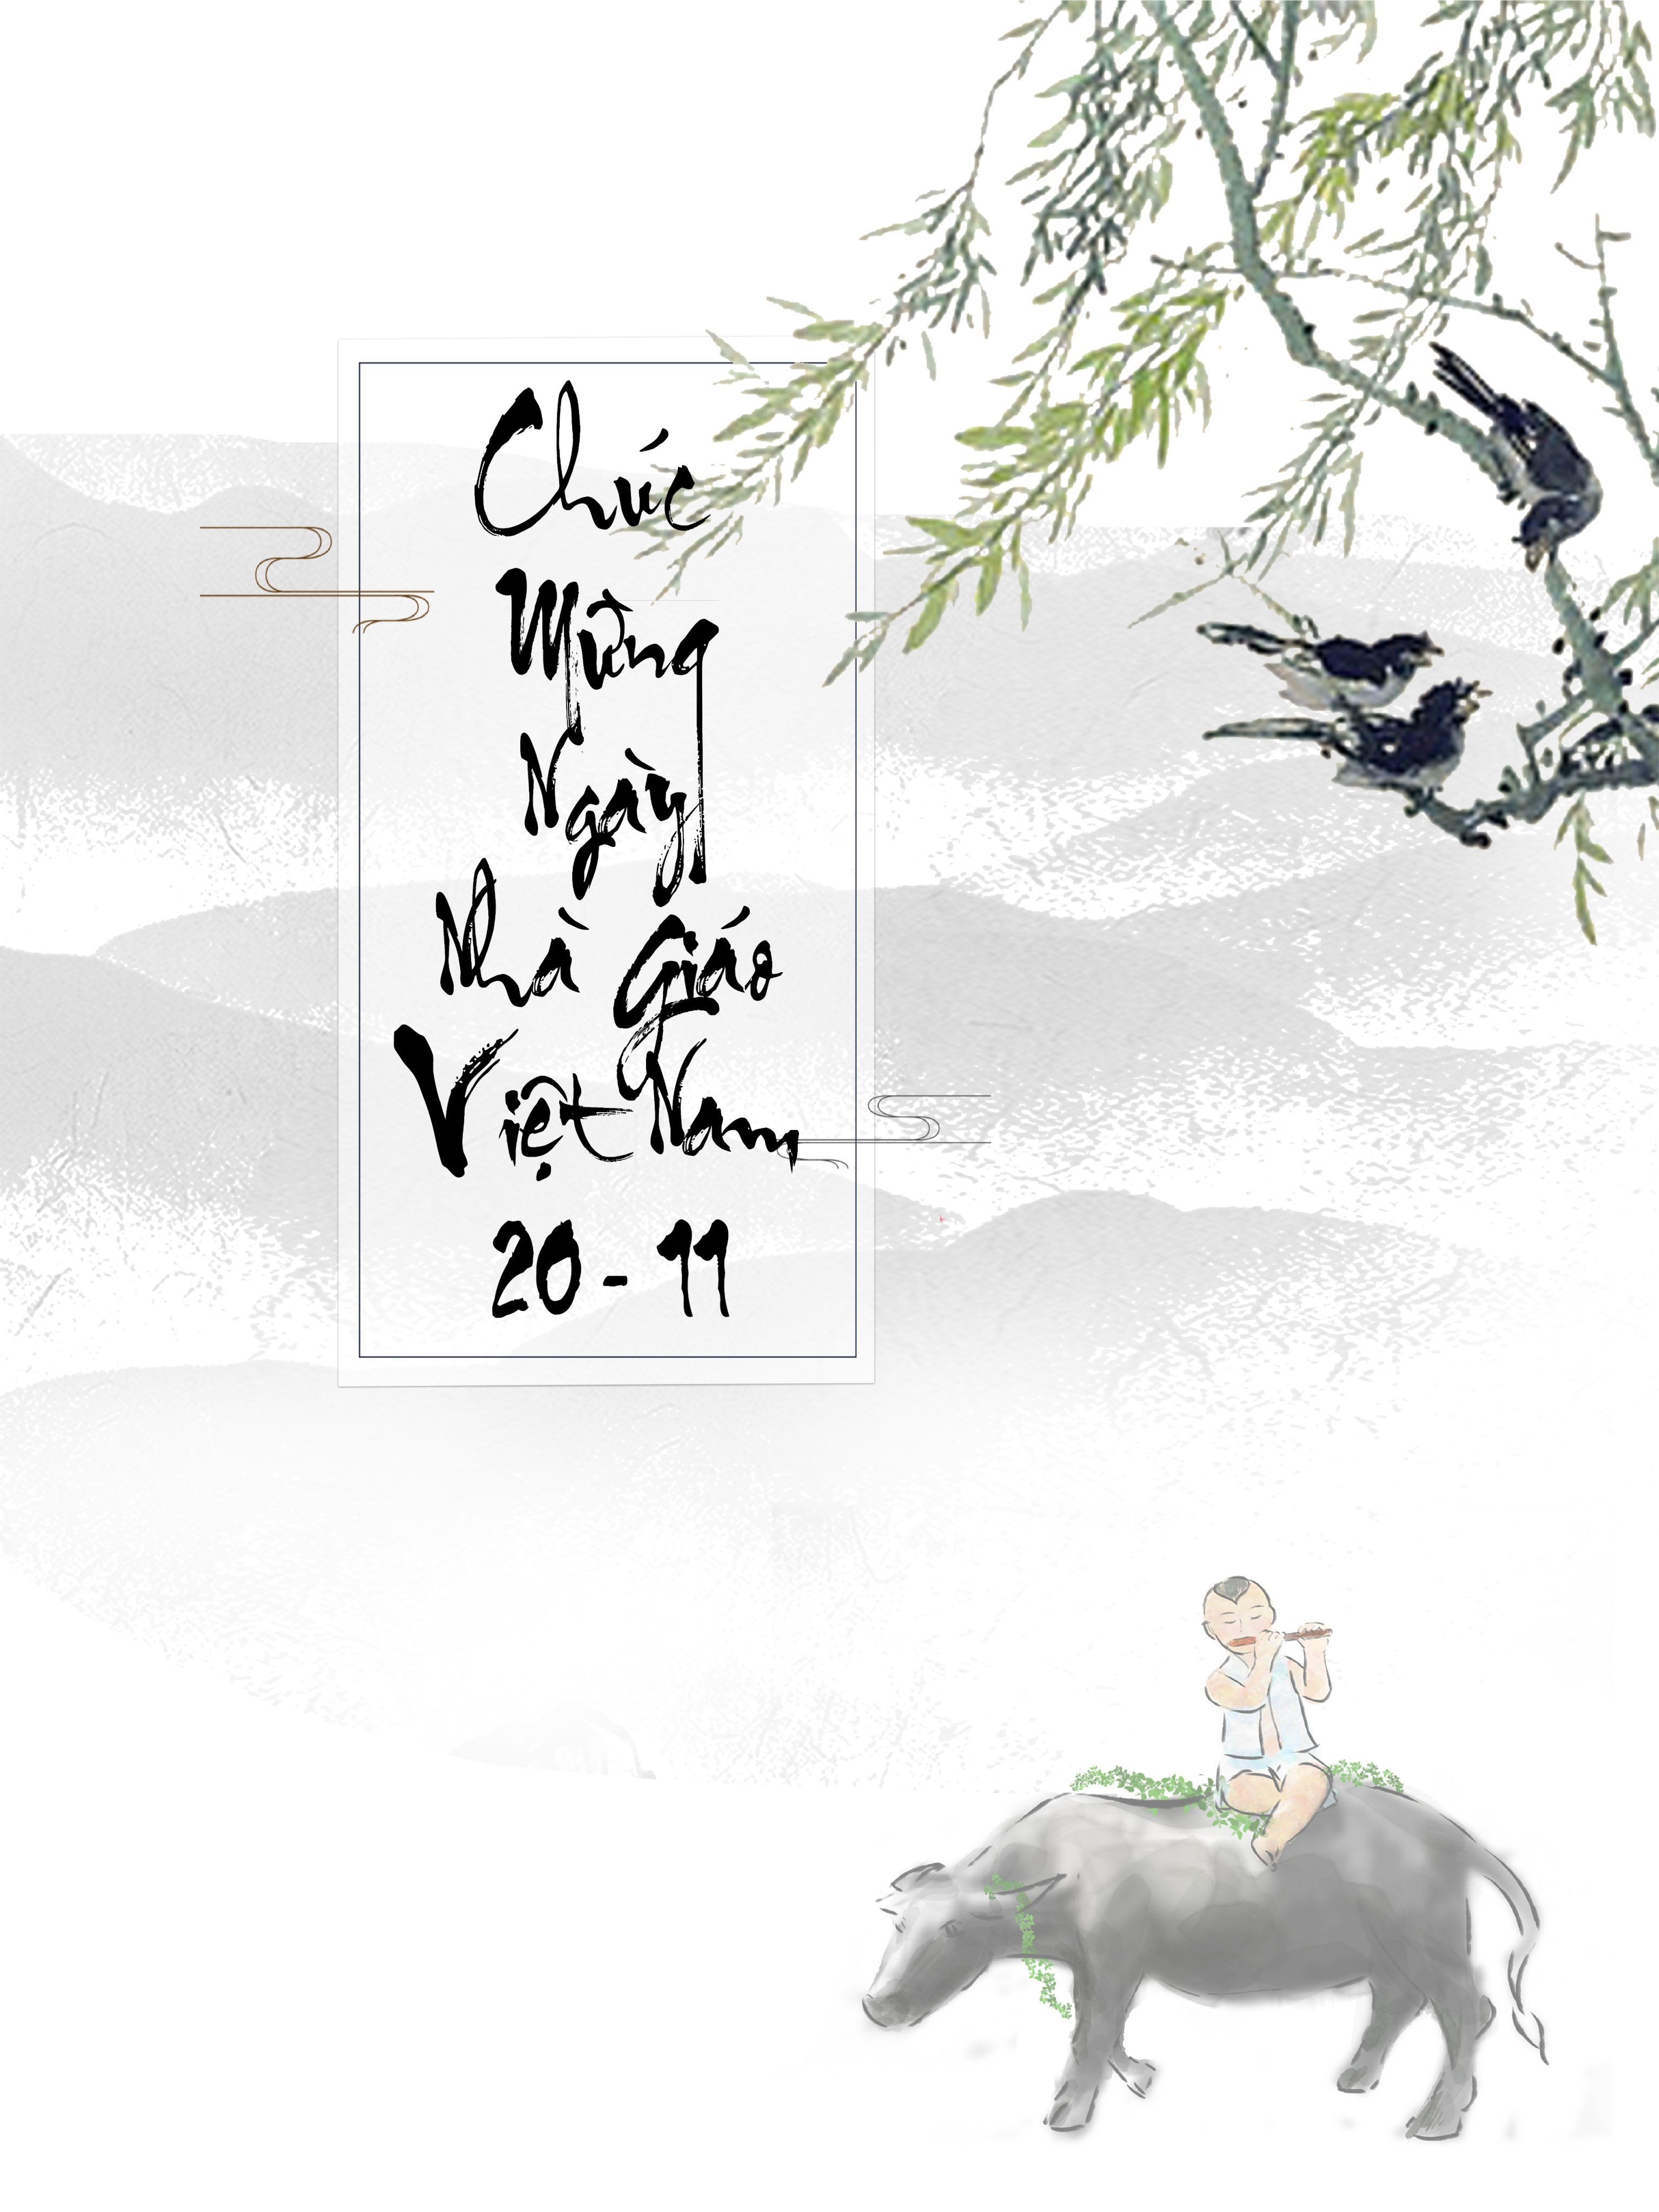 Chúc
Mừng
Ngày
Nhà Giáo
Việt Nam
20 - 11